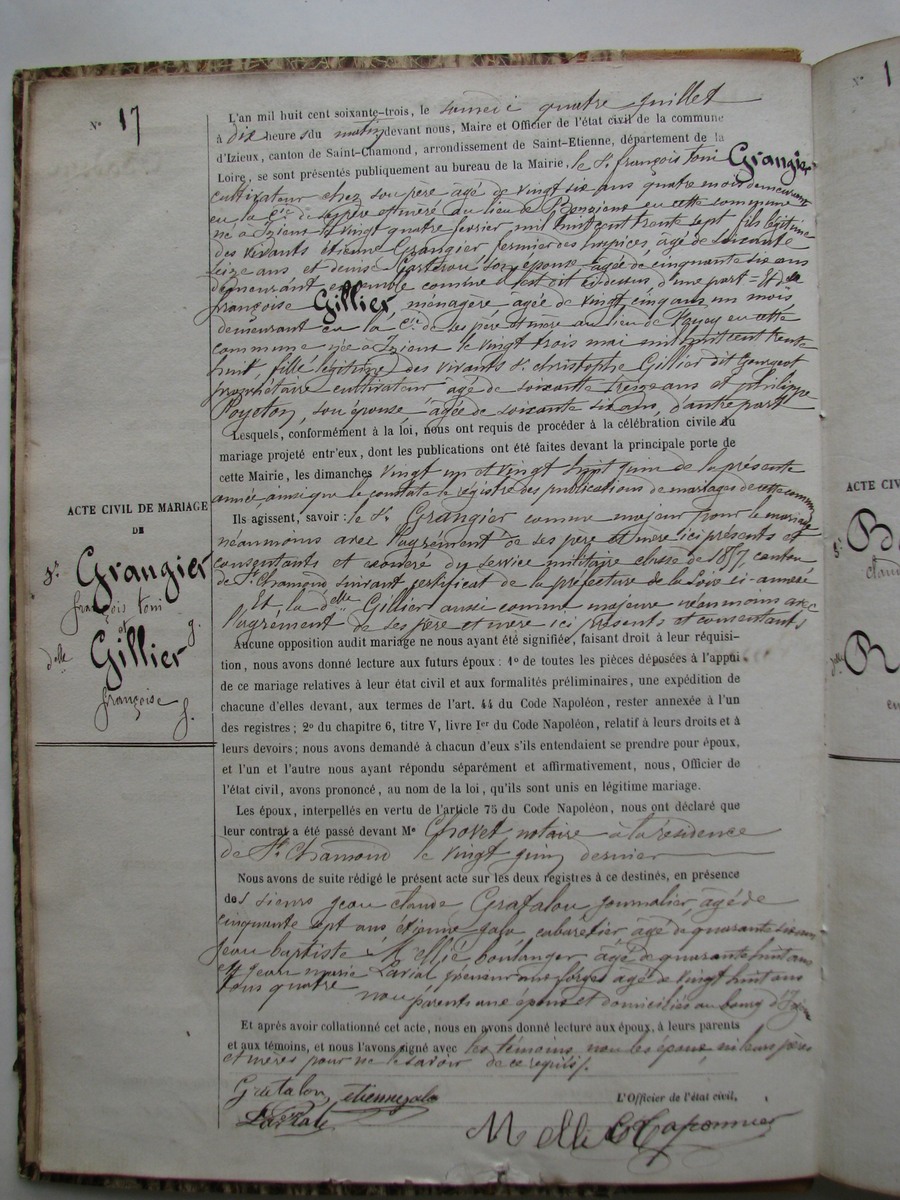 N° 17
L'an mil huit cent soixante-trois, le samedi quatre juillet
à dix heures du matin devant nous, Maire et Officier de l'état civil de la commune
d'Izieux, canton de Saint-Chamond, arrondissement de Saint-Etienne, département de la
Loire, se sont présentés publiquement au bureau de la Mairie. le Sr. françois toni Grangier
cultivateur chez son père âgé de vingt six ans quatre mois demeurant
en la Cie de ses père et mère au lieu de en cette commune
né à Izieux le vingt quatre fevrier mil huit cent trente sept fils légitime
des vivants étienne Grangier fermier des hospices, agé de soixante
seize ans et denise son epouse agée de cinquante six ans
demeurant ensemble comme il est dit ci-dessus d'une part = Et dlle
françoise Gillier, ménagère agée de vingt cinq ans un mois
demeurant en la Cie de ses père et mère au lieu de en cette
commune née à Izieux le vingt trois mai mil huit cent trente
huit, fille légitime des vivants Sr. christophe Gillier dit
propriétaire cultivateur agé de soixante treize ans et philippe
Poyeton, son épouse agée de soixante six ans, d'autre part
Lesquels, conformément à la loi, nous ont requis de procéder à la célébration civile du
mariage projeté entr'eux, dont les publications ont été faites devant la principale porte de
cette Mairie, les dimanches vingt un et vingt huit juin de la présente
année ainsi que le constate le régistre des publications de mariages de cette commune
Ils agissent, savoir : le Sr. Grangier comme majeur pour le mariage
néanmoins avec l'agrément de ses père et mère ici présents et
consentants et exonéré du service militaire classe de 1857 canton
de St Chamond suivant certificat de la préfecture de la Loire ci-annexé
Et la dlle Gillier aussi comme majeure néanmoins avec
l'agrément de ses père et mere ici présents et consentants
Aucune opposition audit mariage ne nous ayant été signifiée, faisant droit à leur réquisi-
tion, nous avons donné lecture aux futurs époux : 1° de toutes les pièces déposées à l'appui
de ce mariage relatives à leur état civil et aux formalités préliminaires, une expédition de
chacune d'elles devant, aux termes de l'art. 44 du Code Napoléon, rester annexée à l'un
des registres ; 2° du chapitre 6, titre V, livre Ier du Code Napoléon, relatif à leurs droits et à
leurs devoirs ; nous avons demandé à chacun d'eux s'ils entendaient se prendre pour époux,
et l'un et l'autre nous ayant répondu séparément et affirmativement, nous, Officier de
l'état civil, avons prononcé, au nom de la loi, qu'ils sont unis en légitime mariage.
Les époux, interpellés en vertu de l'article 75 du Code Napoléon, nous ont déclaré que
leur contrat a été passé devant Me Chovet notaire à la résidence
de St Chamond le vingt juin dernier
Nous avons de suite rédigé le présent acte sur les deux registres à ce destinés, en présence
des sieurs jean claude Gratalou journalier, agé de
cinquante sept ans étienne cabaretier agé de quarante six ans
jean baptiste Mellié boulanger agé de quarante huit ans
Et jean marie aux forges agé de vingt huit ans
tous quatre non parents aux époux et domiciliés au bourg d'Izieux
Et après avoir collationné cet acte, nous en avons donné lecture aux époux, à leurs parents
et aux témoins, et nous l'avons signé avec les témoins non les époux ni leurs pères
et mères pour ne le savoir de ce requis.
Gratalou
L'Officier de l'état civil,
Mellié
ACTE CIVIL DE MARIAGE
DE
Sr. Grangier
françois toni
et
dlle Gillier
françoise
N° 1
ACTE CIV